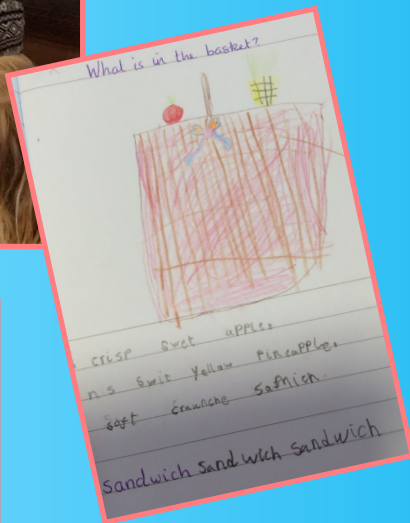 What is in the basket?
crisp swet apple.
n s swit yellow pineapple.
soft craunche safnich.
sandwich sandwich sandwich